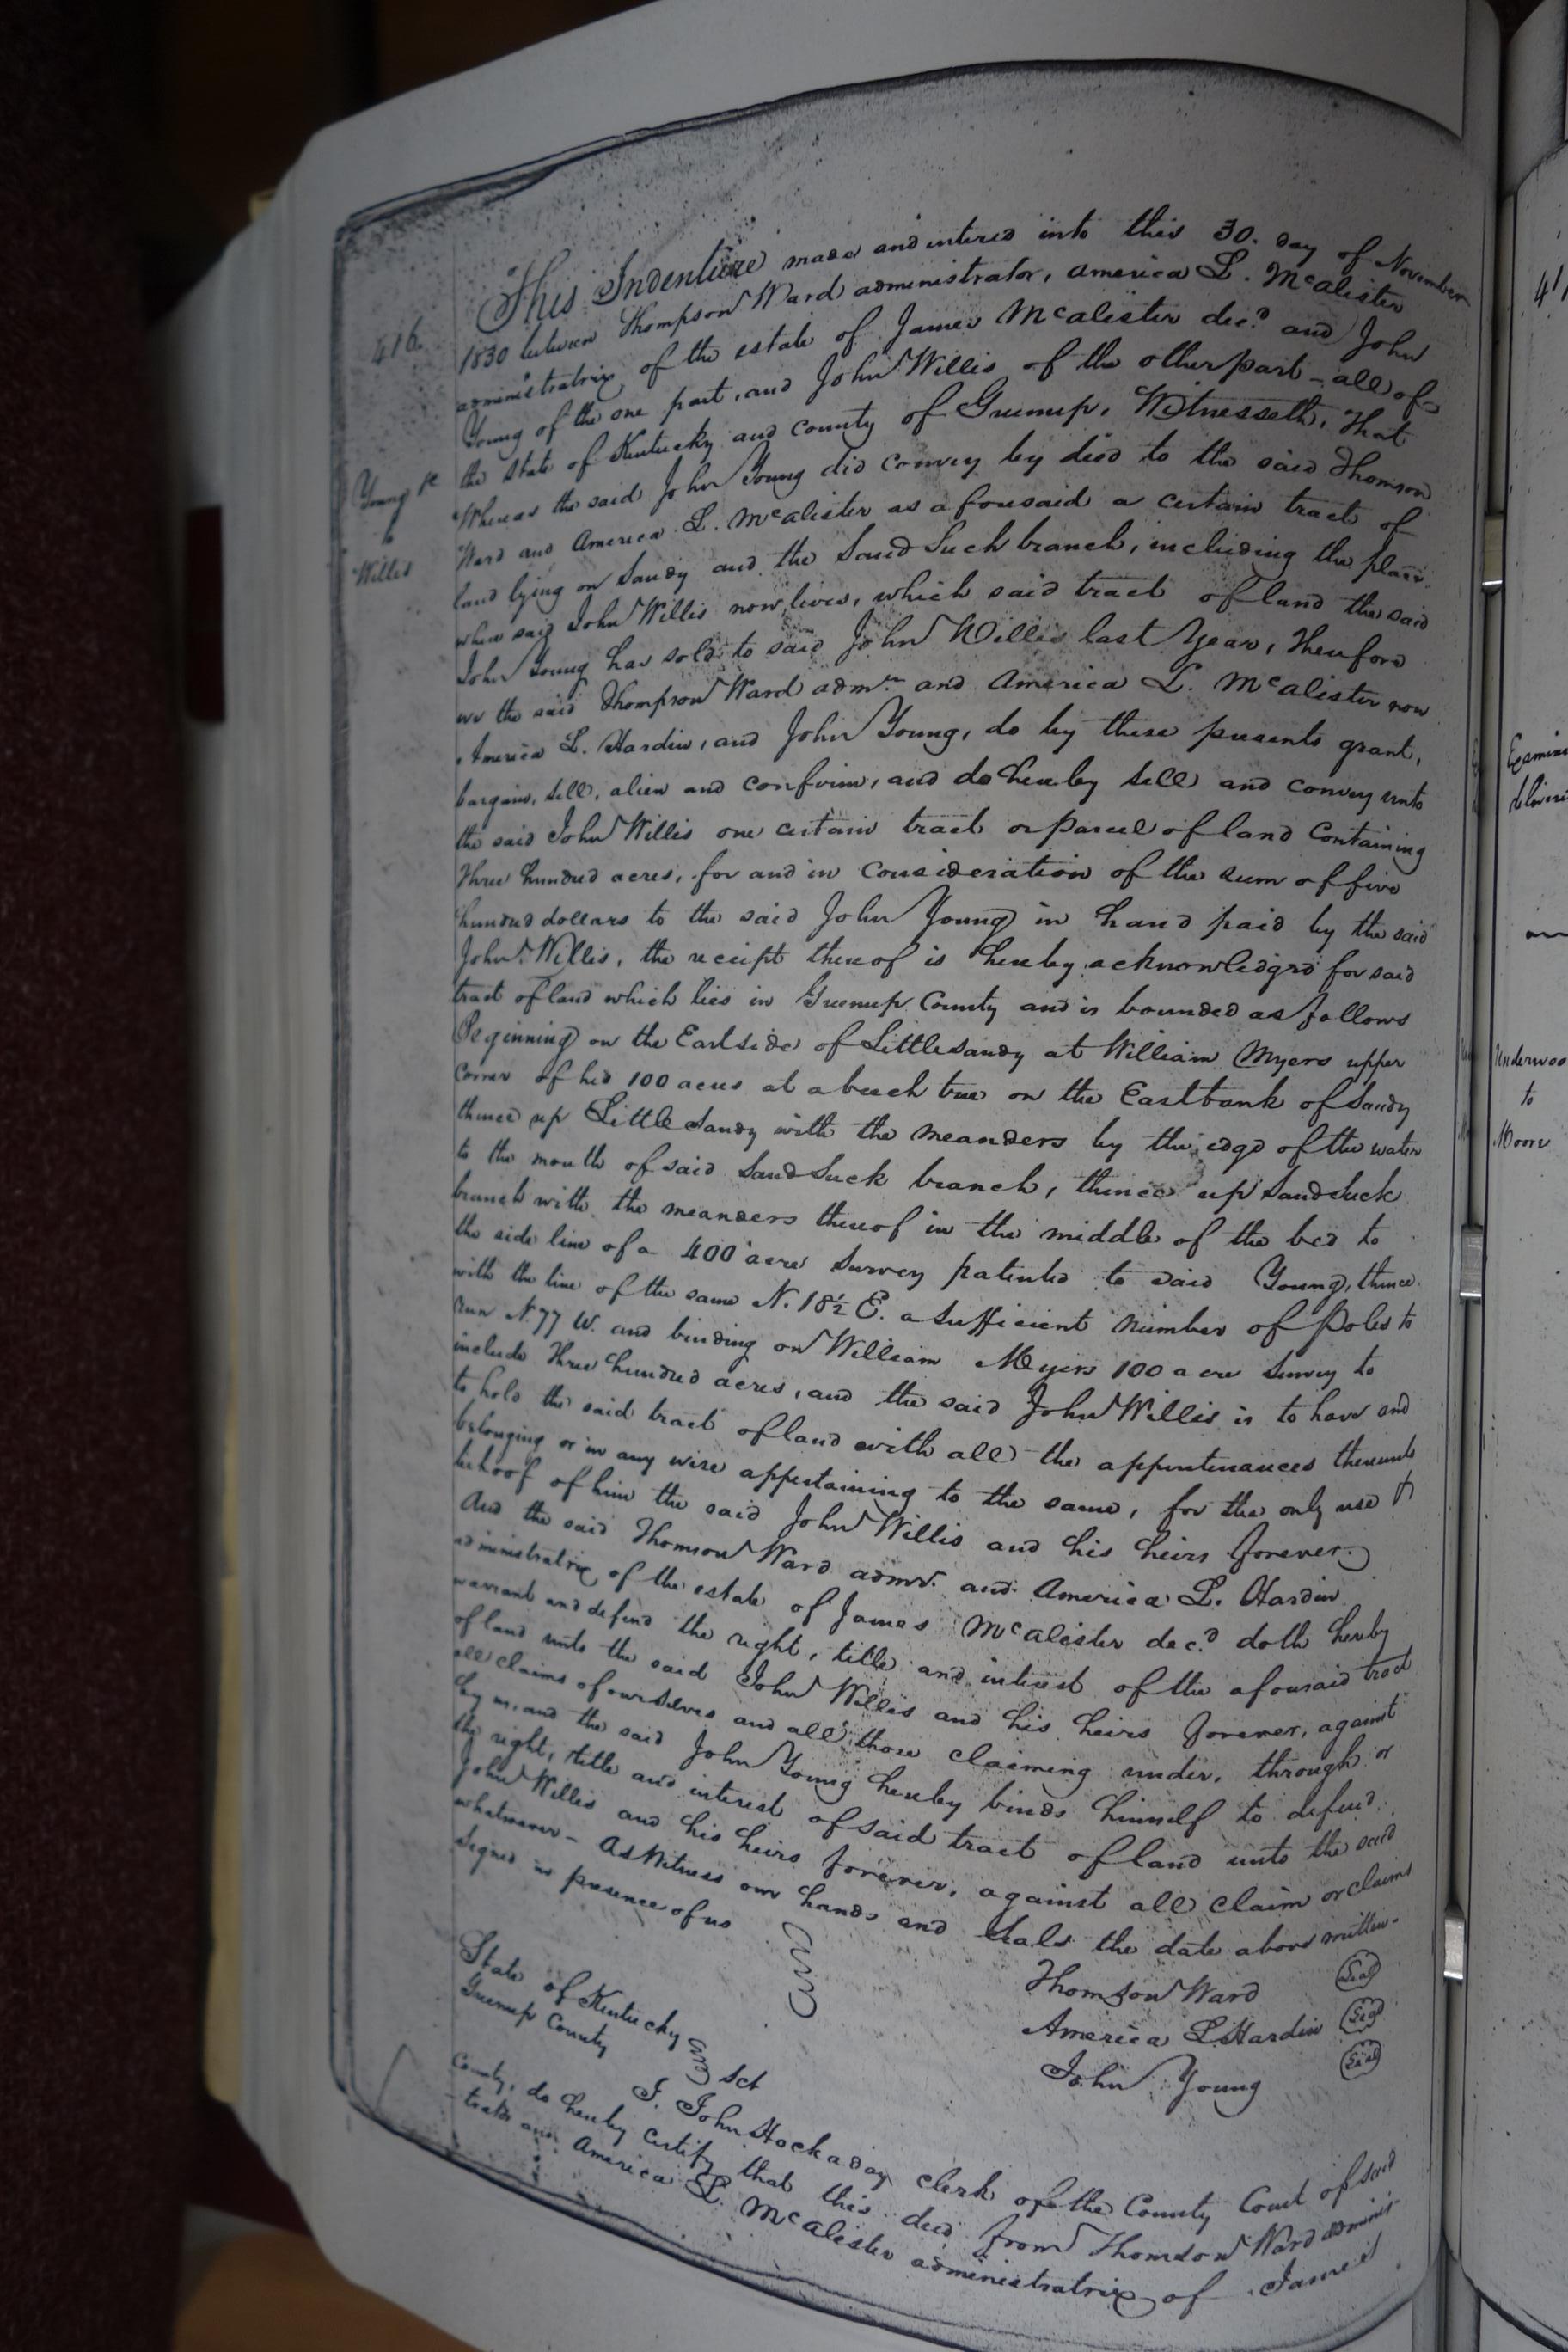 416.
Young &c
to
Willis
This Indenture made and entered into this 30. day of November
1830 between Thompson Ward administrator, America L. McAlister
administratrix of the estate of James McAlister dec.d and John
Young of the one part, and John Willis of the other part - all of
the state of Kentucky and county of Greenup, Witnesseth, That
Whereas the said John Young did convey by deed to the said Thomson
Ward and America L. McAlister as aforesaid a certain tract of
land lying on Sandy and the Sand Suck branch, including the place
where said John Willis now lives, which said tract of land the said
John Young has sold to said John Willis last year, Therefore
we the said Thompson Ward admr. and America L. McAlister now
America L. Hardin, and John Young, do by these presents grant,
bargain, sell, alien and confirm, and do hereby sell and convey unto
the said John Willis one certain tract or parcel of land containing
Three hundred acres, for and in consideration of the sum of five
hundred dollars to the said John Young in hand paid by the said
John Willis, the receipt thereof is hereby acknowledged for said
tract of land which lies in Greenup County and is bounded as follows
Beginning on the East side of Little Sandy at William Myers upper
corner of his 100 acres at a beech tree on the East bank of Sandy
thence up Little Sandy with the meanders by the edge of the water
to the mouth of said Sand Suck branch, thence up Sandsuck
branch with the meanders thereof in the middle of the bed to
the side line of a 400 acre Survey patented to said Young, thence
with the line of the same N. 18½ E. a sufficient number of Poles to
run N. 77 W. and binding on William Myers 100 acre Survey to
include Three hundred acres, and the said John Willis is to have and
to hold the said tract of land with all the appurtenances thereunto
belonging or in any wise appertaining to the same, for the only use &
behoof of him the said John Willis and his heirs forever.
And the said Thomson Ward admr. and America L. Hardin
administratrix of the estate of James McAlister dec.d doth hereby
warrant and defend the right, title and interest of the aforesaid tract
of land unto the said John Willis and his heirs forever, against
all claims of ourselves and all those claiming under, through or
by us, and the said John Young hereby binds himself to defend
the right, title and interest of said tract of land unto the said
John Willis and his heirs forever, against all claim or claims
whatsoever - As Witness our hands and Seals the date above written -
Signed in presence of us
Thomson Ward Seal
America L Hardin Seal
John Young Seal
State of Kentucky
Greenup County Sct
I. John Hockaday clerk of the County Court of said
County, do hereby certify that this deed from Thomson Ward adminis-
-trator and America L. McAlister administratrix of James
Underwoo
to
Moore